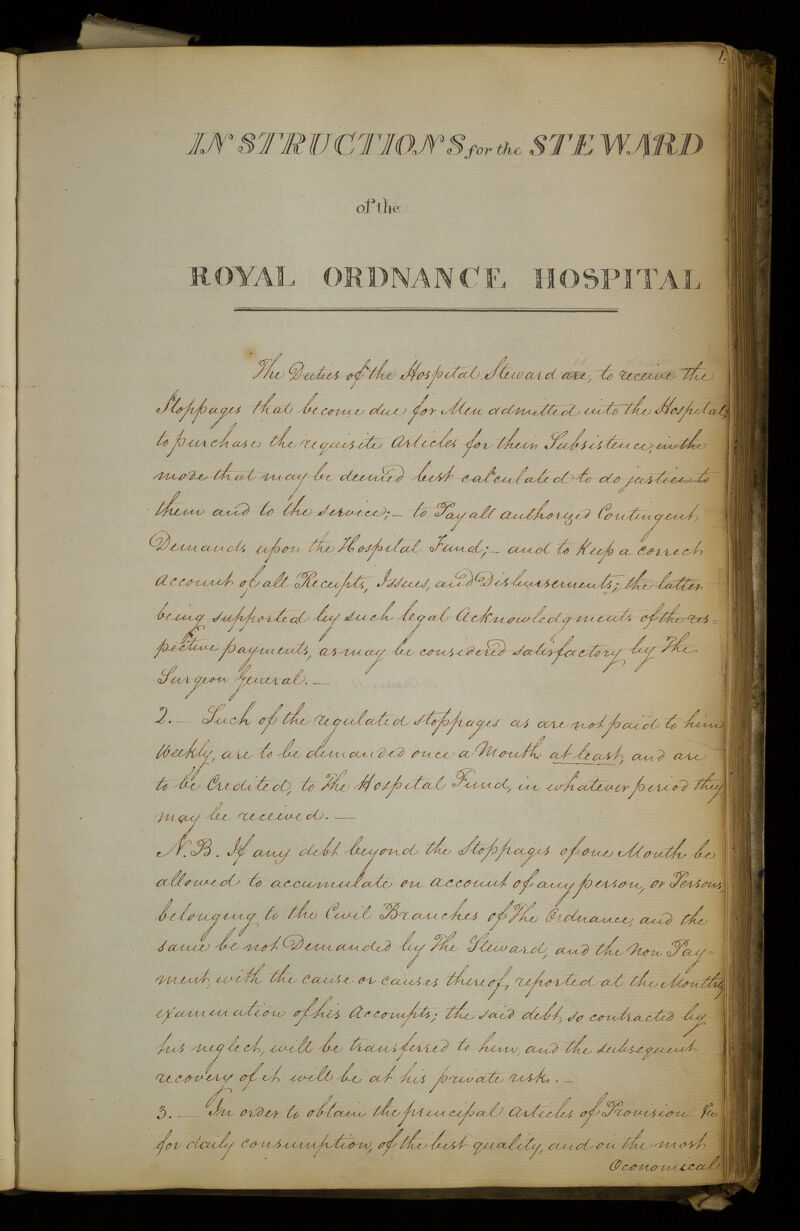 1.
INSTRUCTIONS for the STEWARD
of the
ROYAL ORDNANCE HOSPITAL
The Duties of the Hospital Steward are, to receive The
Stoppages that become due for Men admitted into the Hospital,
to purchase the requisite Articles for their Subsistence, in the
mode that may be deemed best calculated to do justice to
them and to the service;— to Pay all authorized Contingent
Demands upon the Hospital Fund;— and to Keep a correct
account of all Receipts, Issues, and Disbursements; the latter
being supported by such legal Acknowledgments of the res=
pective payments, as may be considered satisfactory by The
Surgeon General.—
2.— Such of the regulated stoppages as are not paid to him
Weekly, are to be demanded once a Month at least, and are
to be Credited, to The Hospital Fund, in whatever period they
may be received.—
N.B. If any debt beyond the Stoppages of one Month be
allowed to accumulate on account of any person, or Persons,
belonging to the Civil Branches of The Ordnance, and the
same be not Demanded by The Steward, and the Non Pay=
ment, with the cause or causes thereof, reported at the Monthly
examination of his Accompts; the said debt, so contracted by
his neglect, will be transferred to him, and the subsequent
recovery of it will be at his private risk.—
3.— In order to obtain the principal Articles of Provision &c
for daily consumption, of the best quality, and on the most
Oeconomical